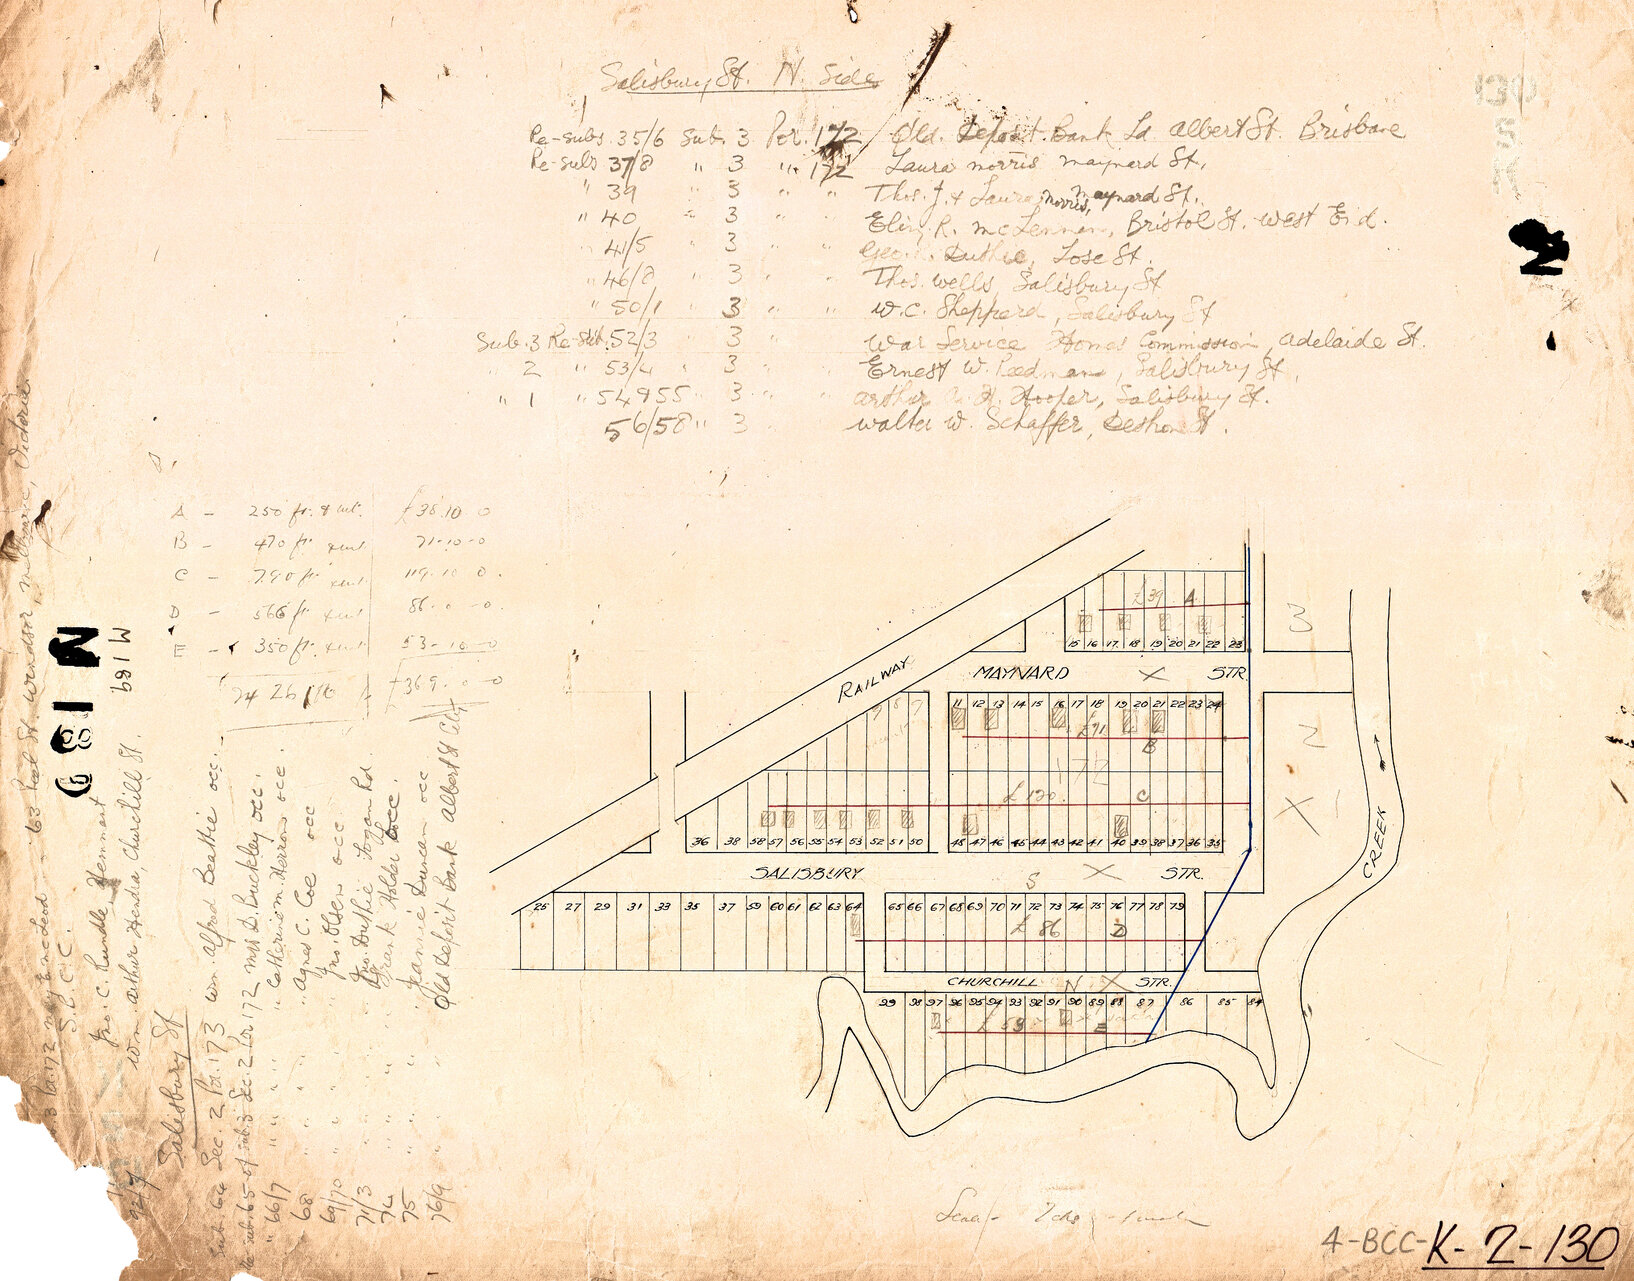 Salisbury St. N. Side
130
5
K
Re-subs. 35/6 Sub. 3 Por. 172 Qld. Deposit Bank Ld Albert St. Brisbane
Re-subs 37/8 " 3 " 172 Laura Norris Maynard St.
" 39 " 3 " " Thos. J. & Laura Norris, Maynard St.
" 40 " 3 " " Eliz. R. McLennan, Bristol St. West End.
" 41/5 " 3 " " Geo. Duthie, Lose St.
" 46/8 " 3 " " Thos. Wells, Salisbury St
" 50/1 " 3 " " W.C. Sheppard, Salisbury St
Sub. 3 Re-sub. 52/3 " 3 " " War Service Homes Commission, Adelaide St.
" 2 " 53/4 " 3 " Ernest W. Reedman, Salisbury St.
" 1 " 54 & 55 " 3 " " Arthur H. Hooper, Salisbury St.
56/58 " 3 Walter W. Schaffer, Deshon St.
A - 250 ft. £38.10 0
B - 470 ft 71-10-0
C - 790 ft 119.10 0.
D - 566 ft 86-0-0
E - 350 ft 53-10-0
2426 £369-0-0
N 189
M 189
63 Peel St. Windsor, Melbourne, Victoria
S.B.C.C.
Jno. C. Rundle, Hemmant
Wm. Arthur Hendra, Churchill St.
Salisbury St
Sub. 64 Sec. 2 Por. 173 Wm. Alfred Beattie occ.
Re-sub. 65 of sub. 3 Sec. 2 Por 172 Mrs D. Buckley occ.
" 66/7 " " " " Catherine M. Herron occ
68 " " " " Agnes C. Coe occ
69/70 " " " " Jno. Olsen occ
71/3 " " " " Geo. Duthie Logan Rd
74 " " " " Frank Holder occ.
75 " " " " Jeannie Duncan occ
76/9 " " " " Qld Deposit Bank Albert St City
RAILWAY
£39 A
15 16 17 18 19 20 21 22 23
3
MAYNARD X STR.
9 8 7
11 12 13 14 15 16 17 18 19 20 21 22 23 24
£71
B
2
172
£120 C
X 1
36 38 58 57 56 55 54 53 52 51 50
48 47 46 45 44 43 42 41 40 39 38 37 36 35
CREEK
SALISBURY X STR.
S
25 27 29 31 33 35 37 59 60 61 62 63 64
65 66 67 68 69 70 71 72 73 74 75 76 77 78 79
£86 D
CHURCHILL N X STR.
99 98 97 96 95 94 93 92 91 90 89 88 87 86 85 84
£53 E
Scale
4-BCC-K-2-130